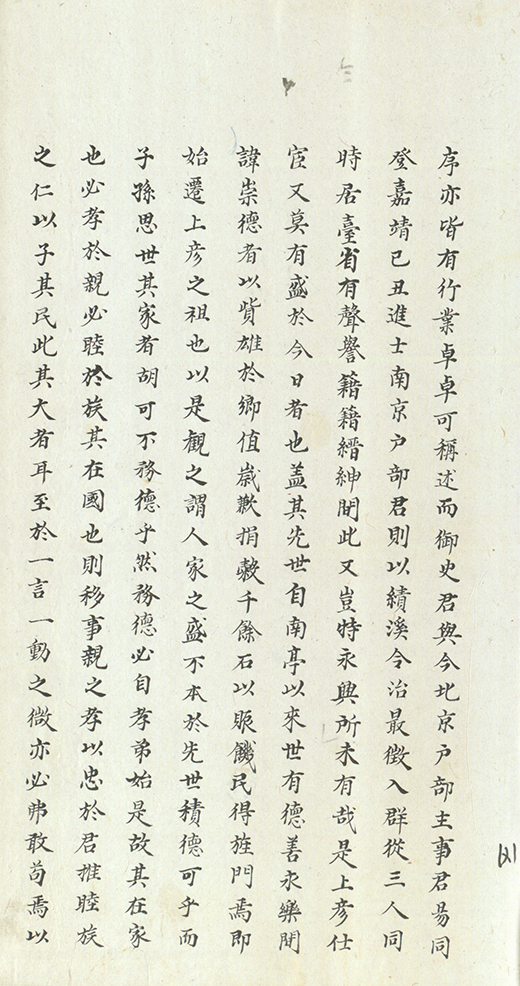 序亦皆有行業卓卓可稱述而御史君與今北京户部主事君昜同
登嘉靖己丑進士南京户部君則以績溪令治最徵入群從三人同
時居臺省有聲譽籍籍縉紳間此又豈特永興所未有哉是上彥仕
宦又莫有盛於今日者也盖其先世自南亭以來世有德善永樂間
諱崇德者以貲雄於鄉值歲歉捐穀千餘石以賑饑民得旌門焉即
始遷上彥之祖也以是觀之謂人家之盛不本於先世積德可乎而
子孫思世其家者胡可不務德乎然務德必自孝弟始是故其在家
也必孝於親必睦於族其在國也則移事親之孝以忠於君推睦族
之仁以子其民此其大者耳至於一言一動之微亦必弗敢苟焉以